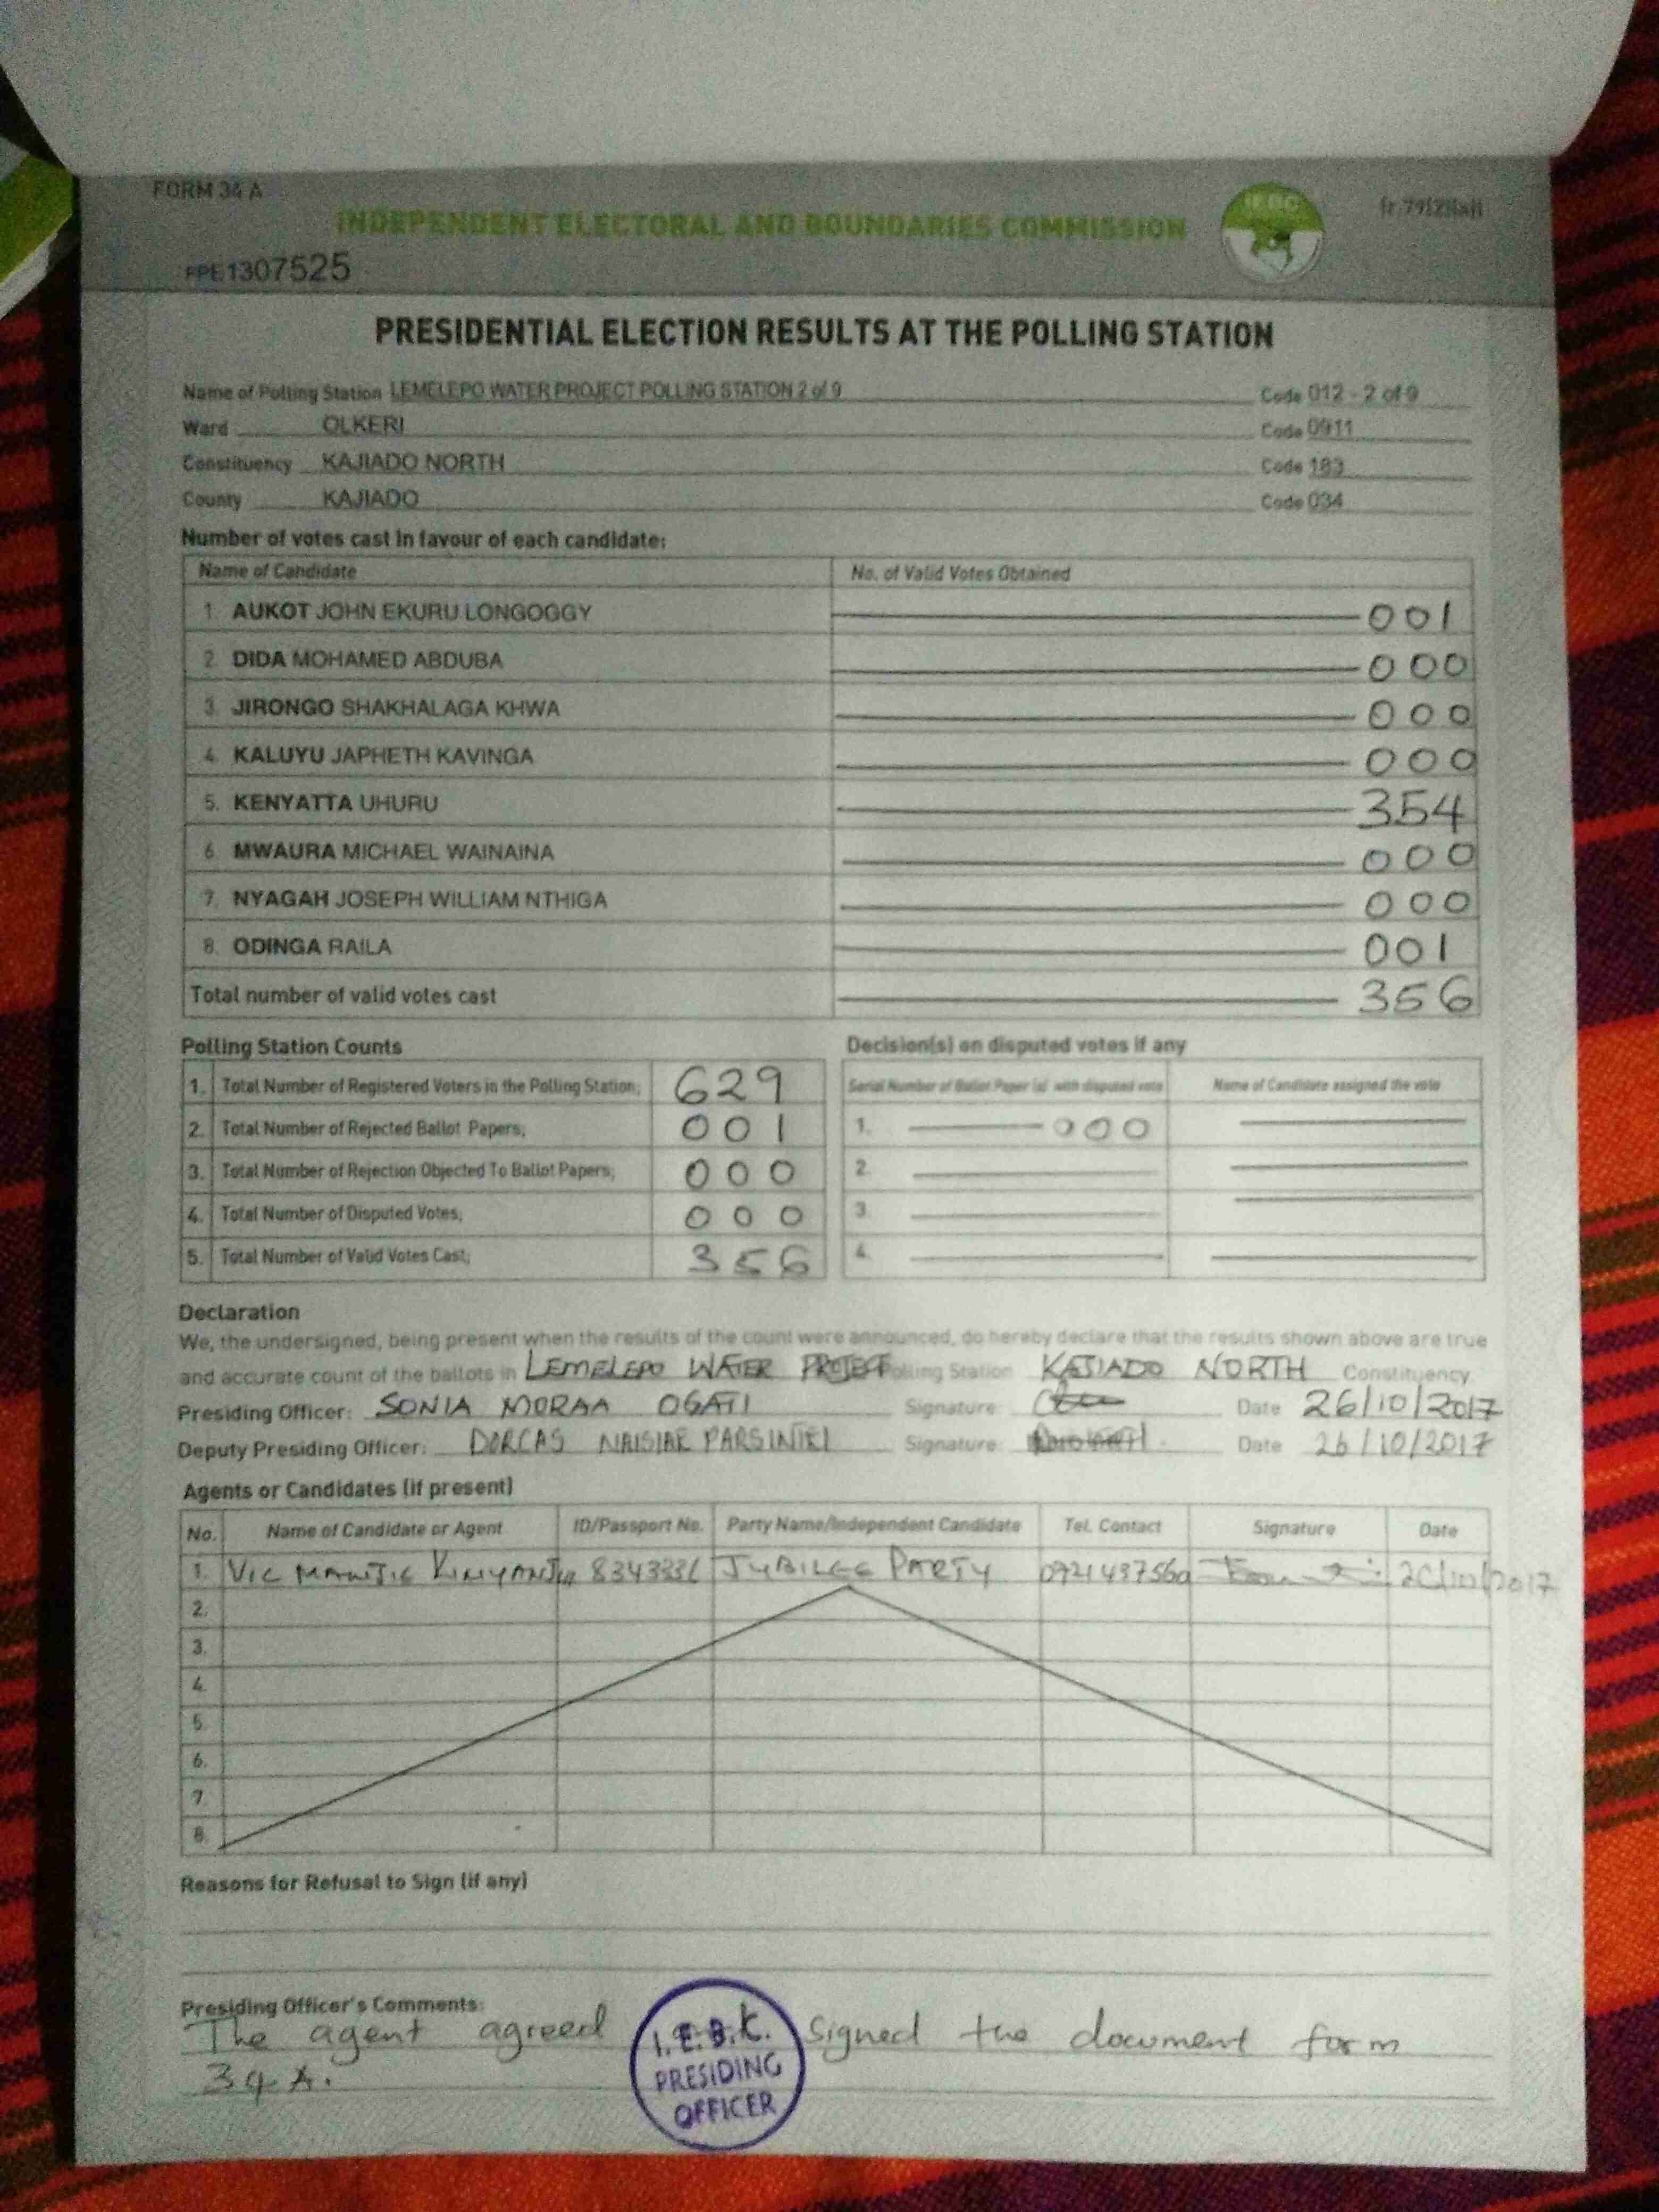 FORM 34 A
INDEPENDENT ELECTORAL AND BOUNDARIES COMMISSION
IEBC
PPE1307525
PRESIDENTIAL ELECTION RESULTS AT THE POLLING STATION
Name of Polling Station LEMELEPO WATER PROJECT POLLING STATION 2 of 9 Code 012 - 2 of 9
Ward OLKERI Code 0911
Constituency KAJIADO NORTH Code 183
County KAJIADO Code 034
Number of votes cast in favour of each candidate:
Name of Candidate No. of Valid Votes Obtained
1. AUKOT JOHN EKURU LONGOGGY 001
2. DIDA MOHAMED ABDUBA 000
3. JIRONGO SHAKHALAGA KHWA 000
4. KALUYU JAPHETH KAVINGA 000
5. KENYATTA UHURU 354
6. MWAURA MICHAEL WAINAINA 000
7. NYAGAH JOSEPH WILLIAM NTHIGA 000
8. ODINGA RAILA 001
Total number of valid votes cast 356
Polling Station Counts Decision(s) on disputed votes if any
Serial Number of Ballot Paper (s) with disputed vote Name of Candidate assigned the vote
1. Total Number of Registered Voters in the Polling Station; 629
2. Total Number of Rejected Ballot Papers; 001 1. 000
3. Total Number of Rejection Objected To Ballot Papers; 000 2.
4. Total Number of Disputed Votes; 000 3.
5. Total Number of Valid Votes Cast; 356 4.
Declaration
We, the undersigned, being present when the results of the count were announced, do hereby declare that the results shown above are true
and accurate count of the ballots in LEMELEPO WATER PROJECT Polling Station KAJIADO NORTH Constituency
Presiding Officer: SONIA MORAA OGATI Signature: Date 26/10/2017
Deputy Presiding Officer: DORCAS NAISIAE PARSINTEI Signature: Date 26/10/2017
Agents or Candidates (if present)
No. Name of Candidate or Agent ID/Passport No. Party Name/Independent Candidate Tel. Contact Signature Date
1. JUBILEE PARTY
2.
3.
4.
5.
6.
7.
8.
Reasons for Refusal to Sign (if any)
Presiding Officer's Comments:
The agent agreed signed the document form
34 A.
I.E.B.C.
PRESIDING
OFFICER